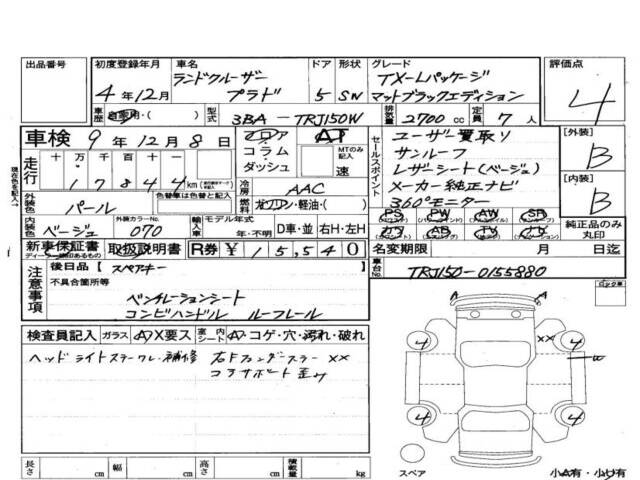 出品番号 初度登録年月 車名 ドア 形状 グレード 評価点
ランドクルーザー TX-Lパッケージ
4年12月 プラド 5 SW マットブラックエディション 4
車歴 自家用・( ) 型式 3BA-TRJ150W 排気量 2700cc 定員 7人
車検 9年12月8日 フロア AT セールスポイント ユーザー買取り [外装]
コラム MTのみ記入 サンルーフ B
走行 十万千百十 17844km ダッシュ 速 レザーシート(ベージュ)
外装色 パール 色替車は色替と元色 冷房 AAC メーカー純正ナビ [内装]
燃料 ガソリン・軽油・( ) 360°モニター B
内装色 ベージュ 外装カラーNo. 070 輸入車 モデル年式 年・不明 D車・並 右H・左H PS PW AW SR
純正品のみ丸印
新車保証書 ディーラー印のあるもの 取扱説明書 R券 ¥15,540 名変期限 月 日迄
現在色を記入→
注意事項 後日品 [ スペアキー ] 車台No. TRJ150-0155880
不具合箇所等
ベンチレーションシート
コンビハンドル ルーフレール
検査員記入 ガラス A X要ス 室内シート A・コゲ・穴・汚れ・破れ
ヘッドライトステーワレ・補修 右Fフェンダーステー XX
コアサポート歪み
A A
XX
4 4
W
4 4
長さ cm 幅 cm 高さ cm 積載量 kg
スペア 小A有・小U有